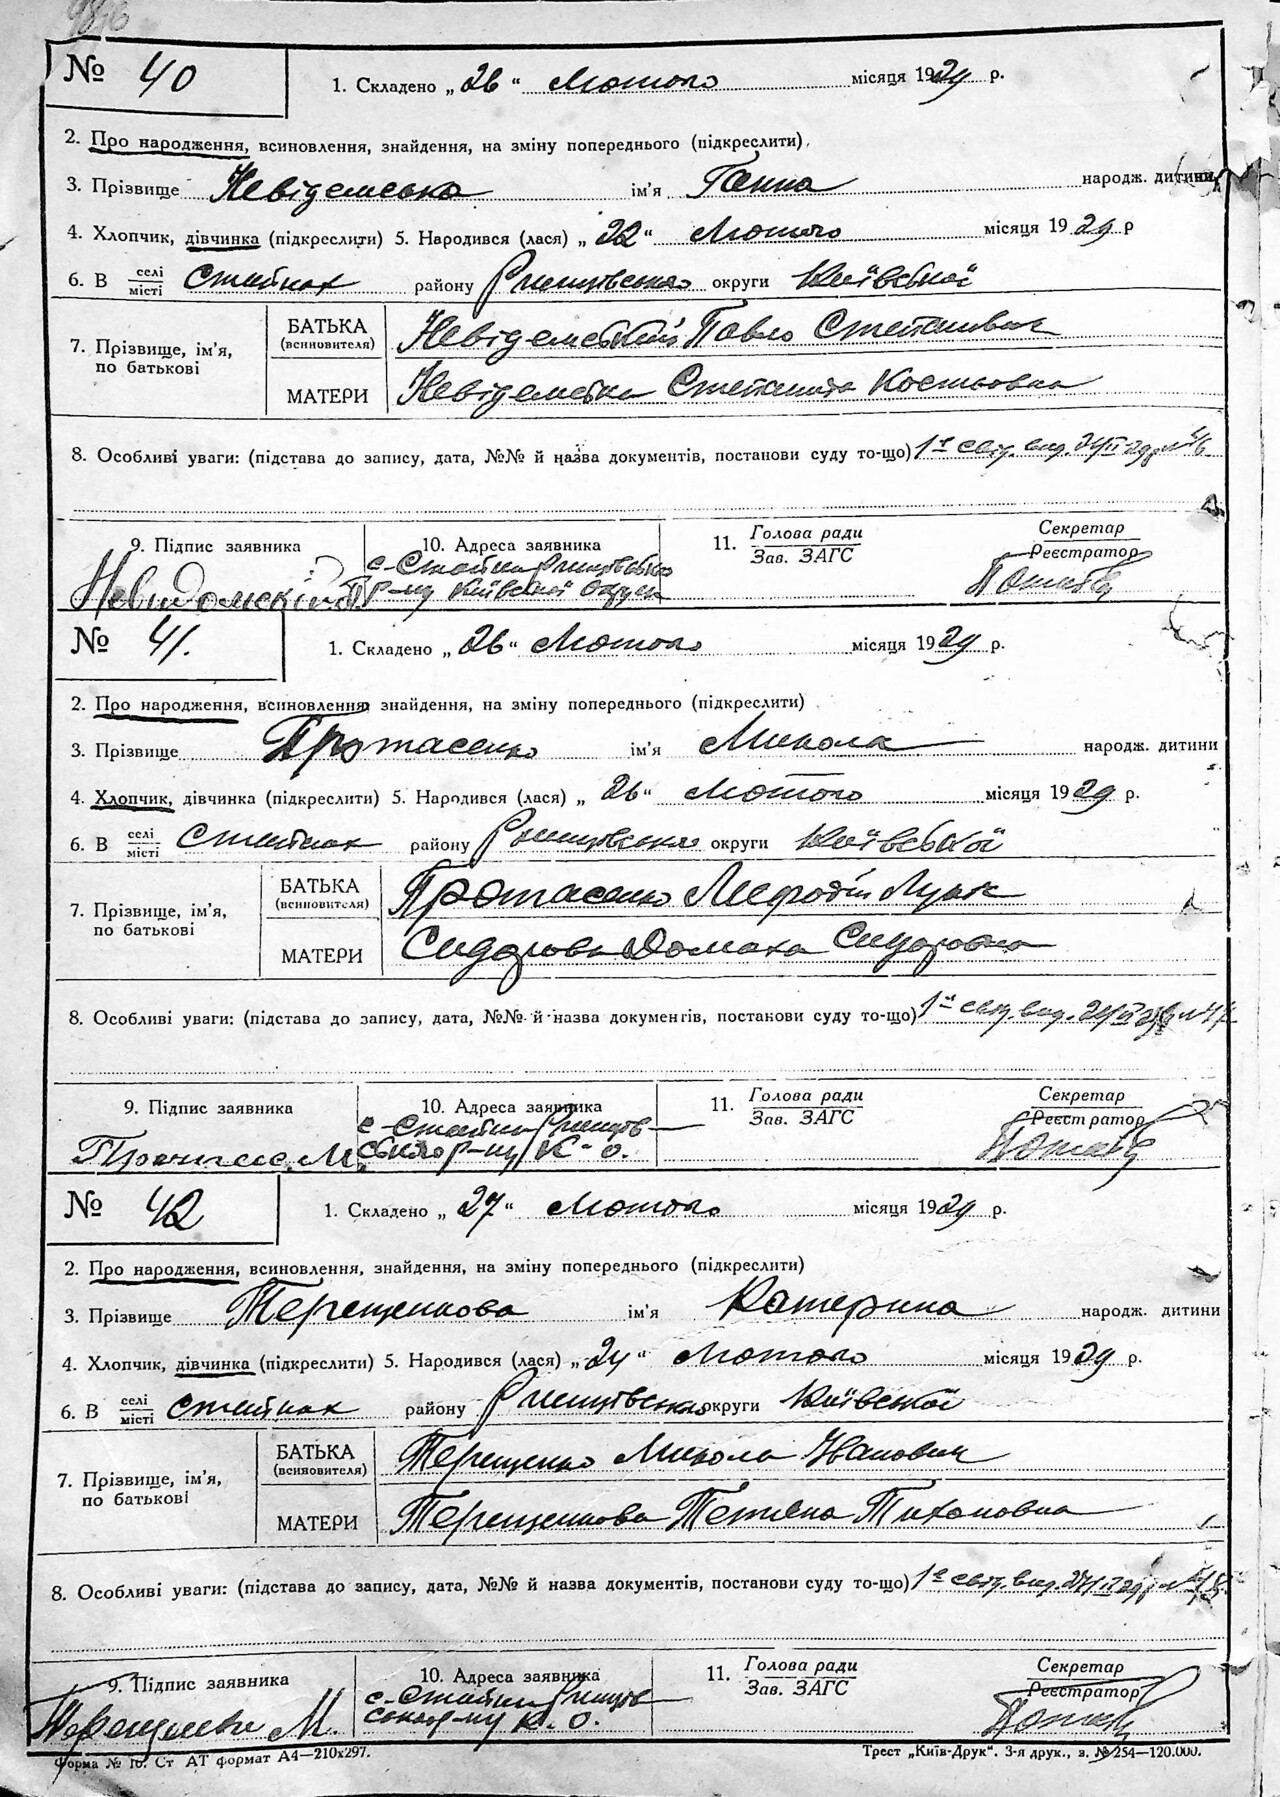 № 40
1. Складено „26“ Лютого місяця 1929 р.
2. Про народження, всиновлення, знайдення, на зміну попереднього (підкреслити).
3. Прізвище Невідемська ім'я Ганна народж. дитини
4. Хлопчик, дівчинка (підкреслити) 5. Народився (лася) „22“ Лютого місяця 1929 р
6. В селі місті Стайках району Ржищівського округи Київської
7. Прізвище, ім'я, по батькові
БАТЬКА (всиновителя) Невідемський Павло Степанович
МАТЕРИ Невідемська Степанида Костьовна
8. Особливі уваги: (підстава до запису, дата, №№ й назва документів, постанови суду то-що)
9. Підпис заявника 10. Адреса заявника 11. Голова ради Зав. ЗАГС Секретар Реєстратор
с-Стайки Ржищівсько
р-ну Київської Округи
№ 41.
1. Складено „26“ Лютого місяця 1929 р.
2. Про народження, всиновлення, знайдення, на зміну попереднього (підкреслити)
3. Прізвище Протасенко ім'я Микола народж. дитини
4. Хлопчик, дівчинка (підкреслити) 5. Народився (лася) „26“ Лютого місяця 1929 р.
6. В селі місті Стайках району Ржищівського округи Київської
7. Прізвище, ім'я, по батькові
БАТЬКА (всиновителя) Протасенко Мефодій
МАТЕРИ Сидорова Домаха Сидоровна
8. Особливі уваги: (підстава до запису, дата, №№ й назва документів, постанови суду то-що)
9. Підпис заявника 10. Адреса заявника 11. Голова ради Зав. ЗАГС Секретар Реєстратор
с-Стайки Ржищів-
р-ну К-о.
№ 42
1. Складено „27“ Лютого місяця 1929 р.
2. Про народження, всиновлення, знайдення, на зміну попереднього (підкреслити)
3. Прізвище Терещенкова ім'я Катерина народж. дитини
4. Хлопчик, дівчинка (підкреслити) 5. Народився (лася) „24“ Лютого місяця 1929 р.
6. В селі місті Стайках району Ржищівського округи Київської
7. Прізвище, ім'я, по батькові
БАТЬКА (всиновителя) Терещенко Микола Иванович
МАТЕРИ Терещенкова Тетяна Тихоновна
8. Особливі уваги: (підстава до запису, дата, №№ й назва документів, постанови суду то-що)
9. Підпис заявника 10. Адреса заявника 11. Голова ради Зав. ЗАГС Секретар Реєстратор
с-Стайки Ржищів-
р-ну К.-о.
Форма № 16. Ст АТ формат А4—210х297. Трест „Київ-Друк“. 3-я друк., з. № 254—120.000.